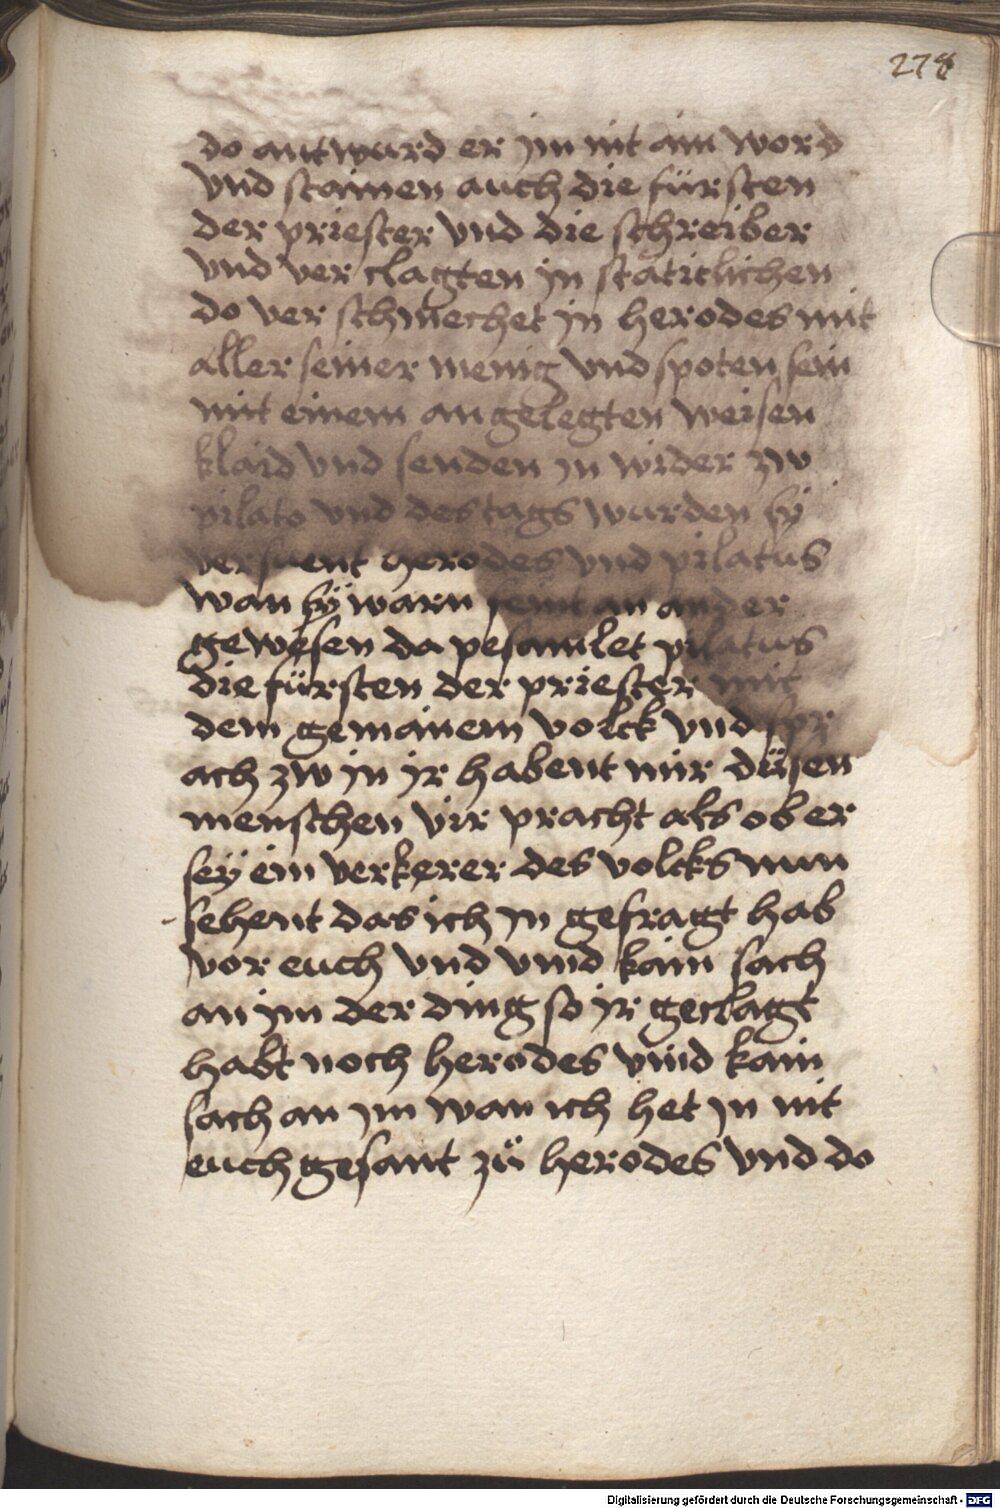 278
do antwurd er jm nit ain word
vnd stainen auch die fürsten
der priester vnd die schreiber
vnd ver clagten jn staticlichen
do ver schmechet jn herodes mit
aller seiner menig vnd spoten sein
mit einem an gelegten weisen
klaid vnd senden jn wider zw
pilato vnd des tags wurden sÿ
versuent herodes vnd pilatus
wan sÿ warn feint an ander
gewesen da pesamlet pilatus
die fürsten der priester mit
dem gemainem volck vnd spr
ach zw jn jr habent mir düsen
menschen vir pracht als ob er
seÿ ein verkerer des volcks nun
sehent das ich jn gefragt hab
vor euch vnd vind kain sach
an jm der ding so jr geclagt
habt noch herodes vind kain
sach an jm wan ich het jn nit
euch gesant zů herodes vnd do
Digitalisierung gefördert durch die Deutsche Forschungsgemeinschaft - DFG